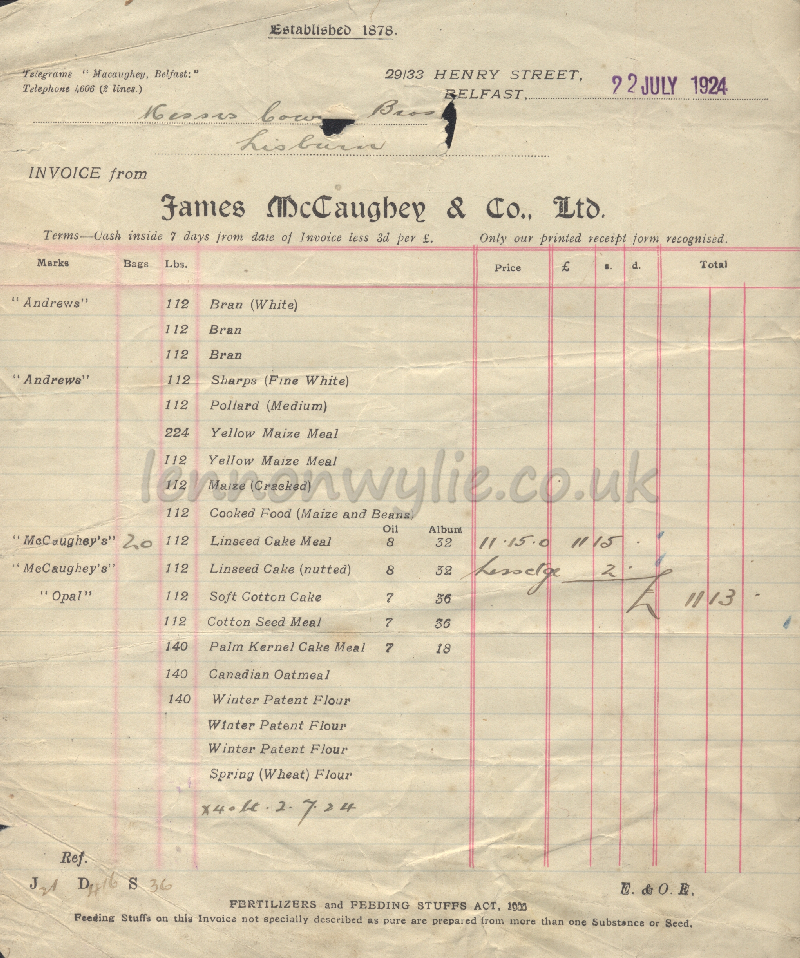 Established 1878.
Telegrams "Macaughey, Belfast:"
Telephone 4606 (2 lines.)
29/33 HENRY STREET,
BELFAST, 22 JULY 1924
Messrs Bros
Lisburn
INVOICE from
James McCaughey & Co., Ltd.
Terms—Cash inside 7 days from date of Invoice less 3d per £. Only our printed receipt form recognised.
Marks Bags Lbs. Price £ s. d. Total
"Andrews" 112 Bran (White)
112 Bran
112 Bran
"Andrews" 112 Sharps (Fine White)
112 Pollard (Medium)
224 Yellow Maize Meal
112 Yellow Maize Meal
112 Maize (Cracked)
112 Cooked Food (Maize and Beans,
Oil Album
"McCaughey's" 20 112 Linseed Cake Meal 8 32 11.15.0 11 15 .
"McCaughey's" 112 Linseed Cake (nutted) 8 32 Less 2.
"Opal" 112 Soft Cotton Cake 7 36 £ 11 13 -
112 Cotton Seed Meal 7 36
140 Palm Kernel Cake Meal 7 18
140 Canadian Oatmeal
140 Winter Patent Flour
Winter Patent Flour
Winter Patent Flour
Spring (Wheat) Flour
2.7.24
Ref.
J D S 36
E. & O. E.
FERTILIZERS and FEEDING STUFFS ACT,
Feeding Stuffs on this Invoice not specially described as pure are prepared from more than one Substance or Seed.
lennonwylie.co.uk